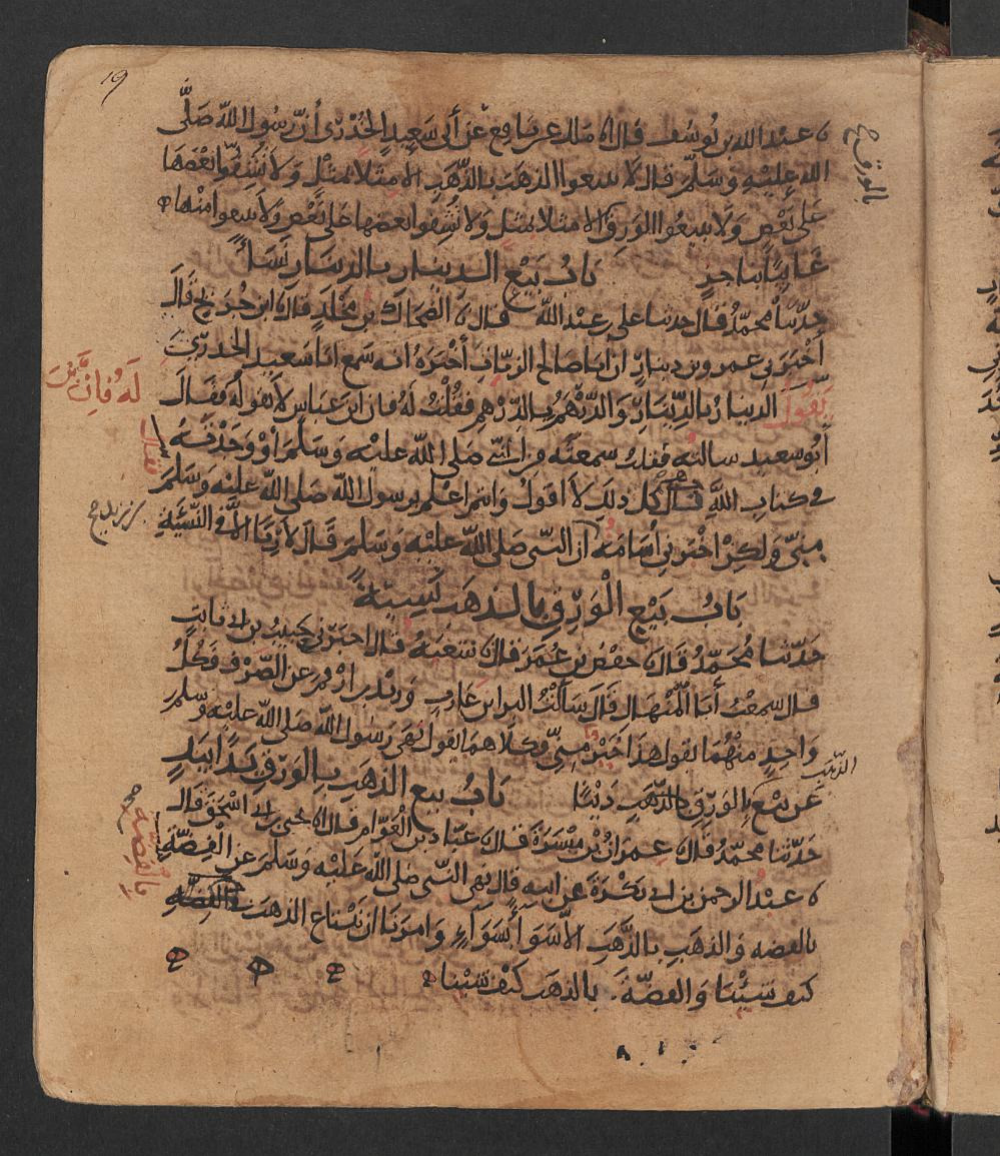 19
نا عبد الله بن يوسف قال انا مالك عن نافع عن أبي سعيد الخدري أن رسول الله صلى
الله عليه وسلم قال لا تبيعوا الذهب بالذهب الا مثلا بمثل ولا تشفوا بعضها
على بعض ولا تبيعوا الورق الا مثلا بمثل ولا تشفوا بعضها على بعض ولا تبيعوا منها
غائبا بناجز باب بيع الدينار بالدينار نسأ
حدثنا محمد قال حدثنا علي بن عبد الله قال نا الضحاك بن مخلد قال نا ابن جريج قال
أخبرني عمرو بن دينار ان ابا صالح الزيات أخبره انه سمع ابا سعيد الخدري
يقول الدينار بالدينار والدرهم بالدرهم فقلت له فان ابن عباس لا يقوله فقال
أبو سعيد سالته فقلت سمعته من النبي صلى الله عليه وسلم أو وجدته
في كتاب الله قال كل ذلك لا اقول وانتم اعلم برسول الله صلى الله عليه وسلم
مني ولكن اخبرني أسامة أن النبي صلى الله عليه وسلم قال لا ربا الا في النسيئة
باب بيع الورق بالذهب نسيئة
حدثنا محمد قال نا حفص بن عمر قال نا شعبة قال اخبرني حبيب بن ابي ثابت
قال سمعت أبا المنهال قال سألت البراء بن عازب وزيد بن ارقم عن الصرف فكل
واحد منهما يقول هذا خير مني وكلاهما يقول نهى رسول الله صلى الله عليه وسلم
عن بيع الورق بالذهب دينا باب بيع الذهب بالورق يدا بيد
حدثنا محمد قال نا عمران بن ميسرة قال نا عباد بن العوام قال انا يحيى بن ابي اسحق قال
نا عبد الرحمن بن ابي بكرة عن ابيه قال نهى النبي صلى الله عليه وسلم عن الفضة
بالفضة والذهب بالذهب الا سواء بسواء وامرنا ان نبتاع الذهب بالفضة
كيف شئنا والفضة بالذهب كيف شئنا
الورق
له فإن
الذهب
بالفضة